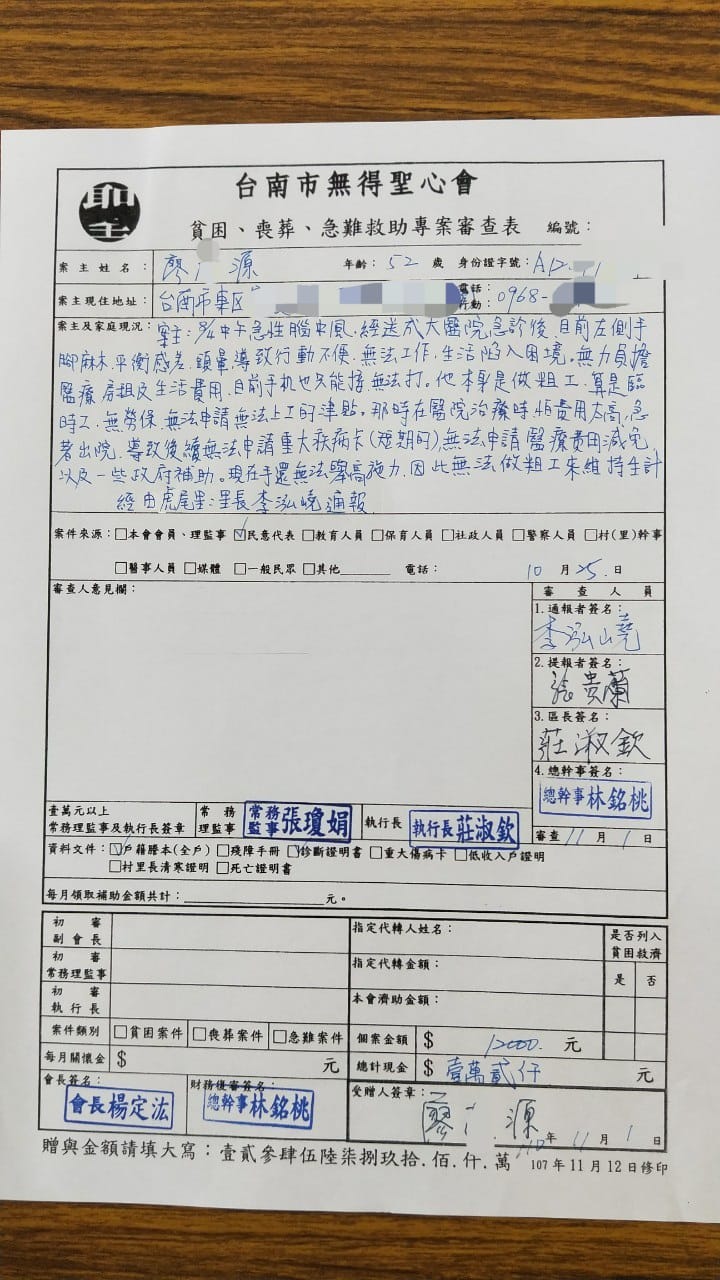 聖
台南市無得聖心會
貧困、喪葬、急難救助專案審查表 編號：
案主姓名： 廖 源 年齡： 52 歲 身份證字號： A12
案主現住地址： 台南市東區 電話： 行動： 0968-
案主及家庭現況： 案主：8/4中午急性腦中風，經送成大醫院急診後，目前左側手
腳麻木、平衡感差、頭暈，導致行動不便，無法工作，生活陷入困境。無力負擔
醫療、房租及生活費用，目前手机也只能接無法打。他本身是做粗工，算是臨
時工，無勞保，無法申請無法上工的津貼。那時在醫院治療時，怕費用太高，急
著出院，導致後續無法申請重大疾病卡(短期的)，無法申請醫療費用減免，
以及一些政府補助。現在手還無法舉高施力，因此無法做粗工來維持生計
經由虎尾里：里長李泓嶢通報
案件來源：□本會會員、理監事 ☑民意代表 □教育人員 □保育人員 □社政人員 □警察人員 □村(里)幹事
□醫事人員 □媒體 □一般民眾 □其他 電話： 10 月 25 日
審查人意見欄： 審查人員
1.通報者簽名：
李泓嶢
2.提報者簽名：
張貴蘭
3.區長簽名：
莊淑欽
4.總幹事簽名：
總幹事林銘桃
壹萬元以上
常務理監事及執行長簽章 常務理監事 常務監事張瓊娟 執行長 執行長莊淑欽 審查 11 月 1 日
資料文件：☑戶籍謄本(全戶) □殘障手冊 ☑診斷證明書 □重大傷病卡 □低收入戶證明
□村里長清寒證明 □死亡證明書
每月領取補助金額共計： 元。
初審副會長 指定代轉人姓名： 是否列入貧困救濟
初審常務理監事 指定代轉金額： 是 否
初審執行長 本會濟助金額：
案件類別 □貧困案件 □喪葬案件 □急難案件 個案金額 $ 12000. 元
每月關懷金 $ 元 總計現金 $ 壹萬貳仟 元
會長簽名： 財務後審簽名： 受贈人簽章：
會長楊定汯 總幹事林銘桃 廖 源
110 年 11 月 1 日
贈與金額請填大寫：壹貳參肆伍陸柒捌玖拾.佰.仟.萬 107年11月12日修印